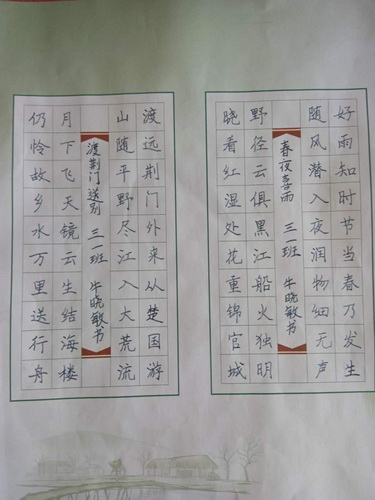 好雨知时节当春乃发生
随风潜入夜润物细无声
春夜喜雨 三一班 牛晓敏书
野径云俱黑江船火独明
晓看红湿处花重锦官城
渡远荆门外来从楚国游
山随平野尽江入大荒流
渡荆门送别 三一班 牛晓敏书
月下飞天镜云生结海楼
仍怜故乡水万里送行舟